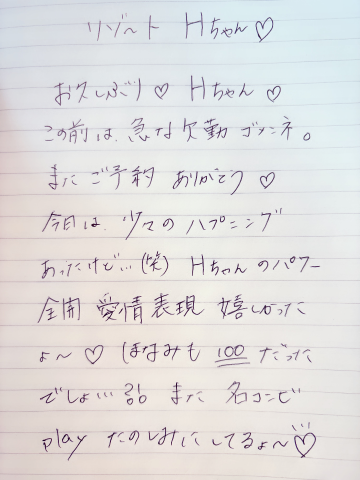 リゾート Hちゃん♡
お久しぶり♡ Hちゃん♡
この前は、急な欠勤ゴメンネ。
またご予約ありがとう♡
今日は、少々のハプニング
あったけど…(笑) Hちゃんのパワー
全開 愛情表現 嬉しかった
よ〜♡ ほなみも 100 だった
でしょ…?!。また 名コンビ
play たのしみにしてるよ〜♡